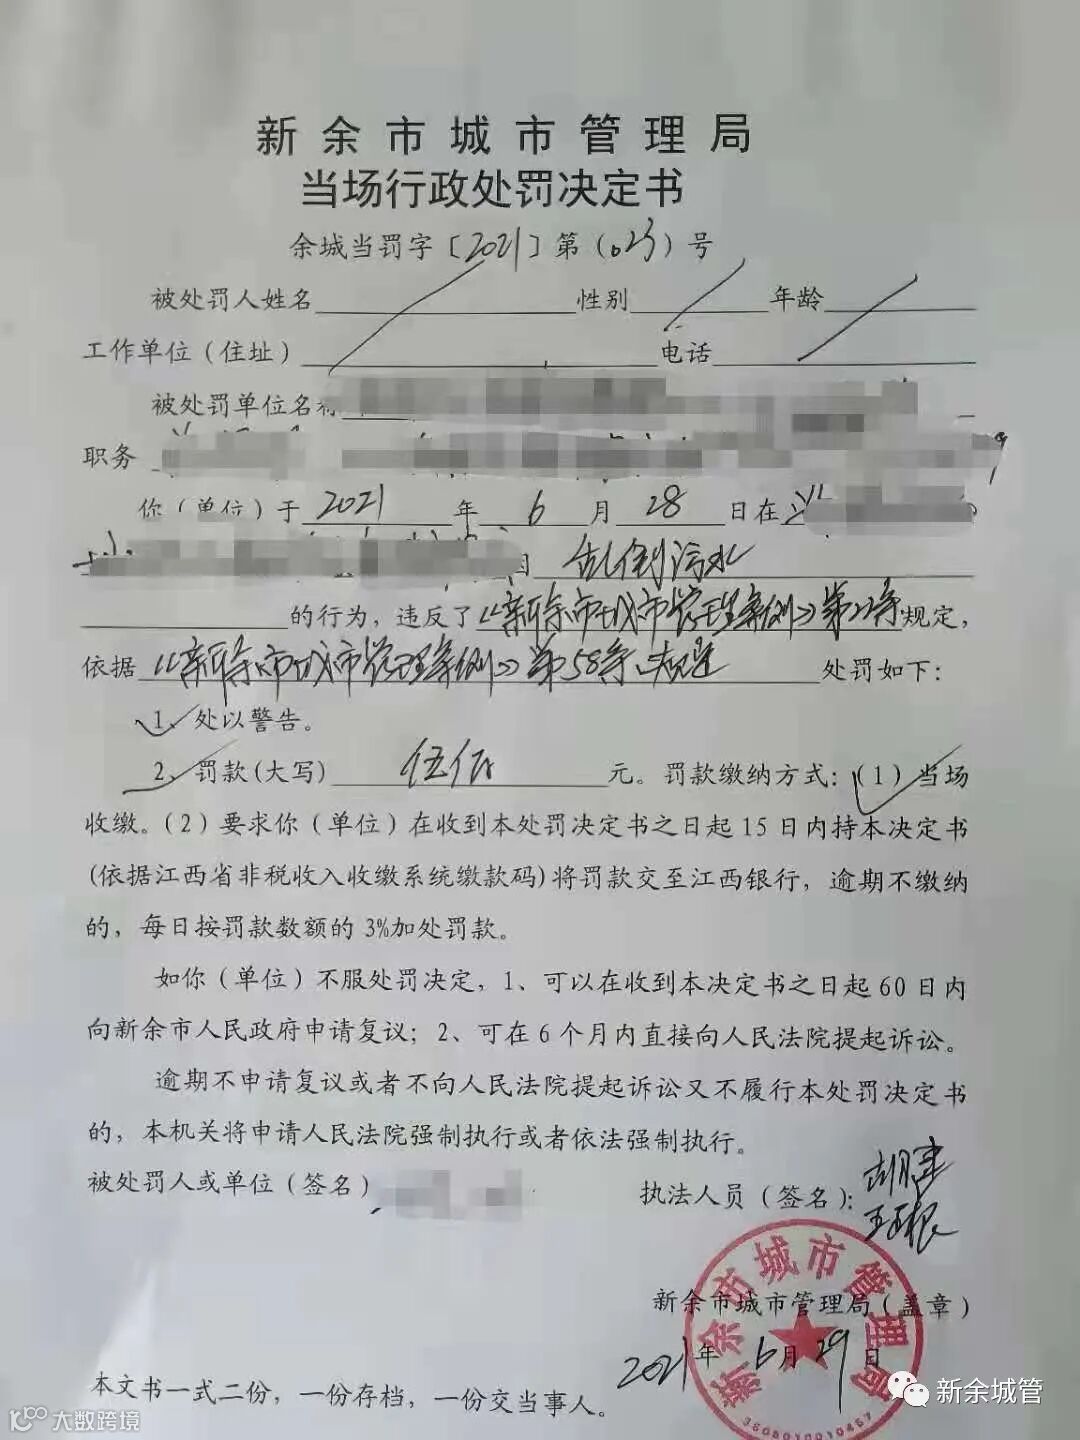 新余市城市管理局
当场行政处罚决定书
余城当罚字〔2021〕第(023)号
被处罚人姓名 性别 年龄
工作单位(住址) 电话
被处罚单位名称
职务
你(单位)于 2021 年 6 月 28 日在
因 乱倒污水
的行为，违反了《新余市城市管理条例》第22条规定，
依据《新余市城市管理条例》第58条规定 处罚如下：
1、处以警告。
2、罚款(大写) 伍佰 元。罚款缴纳方式：(1)当场
收缴。(2)要求你(单位)在收到本处罚决定书之日起15日内持本决定书
(依据江西省非税收入收缴系统缴款码)将罚款交至江西银行，逾期不缴纳
的，每日按罚款数额的3%加处罚款。
如你(单位)不服处罚决定，1、可以在收到本决定书之日起60日内
向新余市人民政府申请复议；2、可在6个月内直接向人民法院提起诉讼。
逾期不申请复议或者不向人民法院提起诉讼又不履行本处罚决定书
的，本机关将申请人民法院强制执行或者依法强制执行。
被处罚人或单位(签名)
执法人员(签名)：胡建
新余市城市管理局(盖章)
新余市城市管理局
2021年6月29日
3605010010457
本文书一式二份，一份存档，一份交当事人。
新余城管
大数跨境